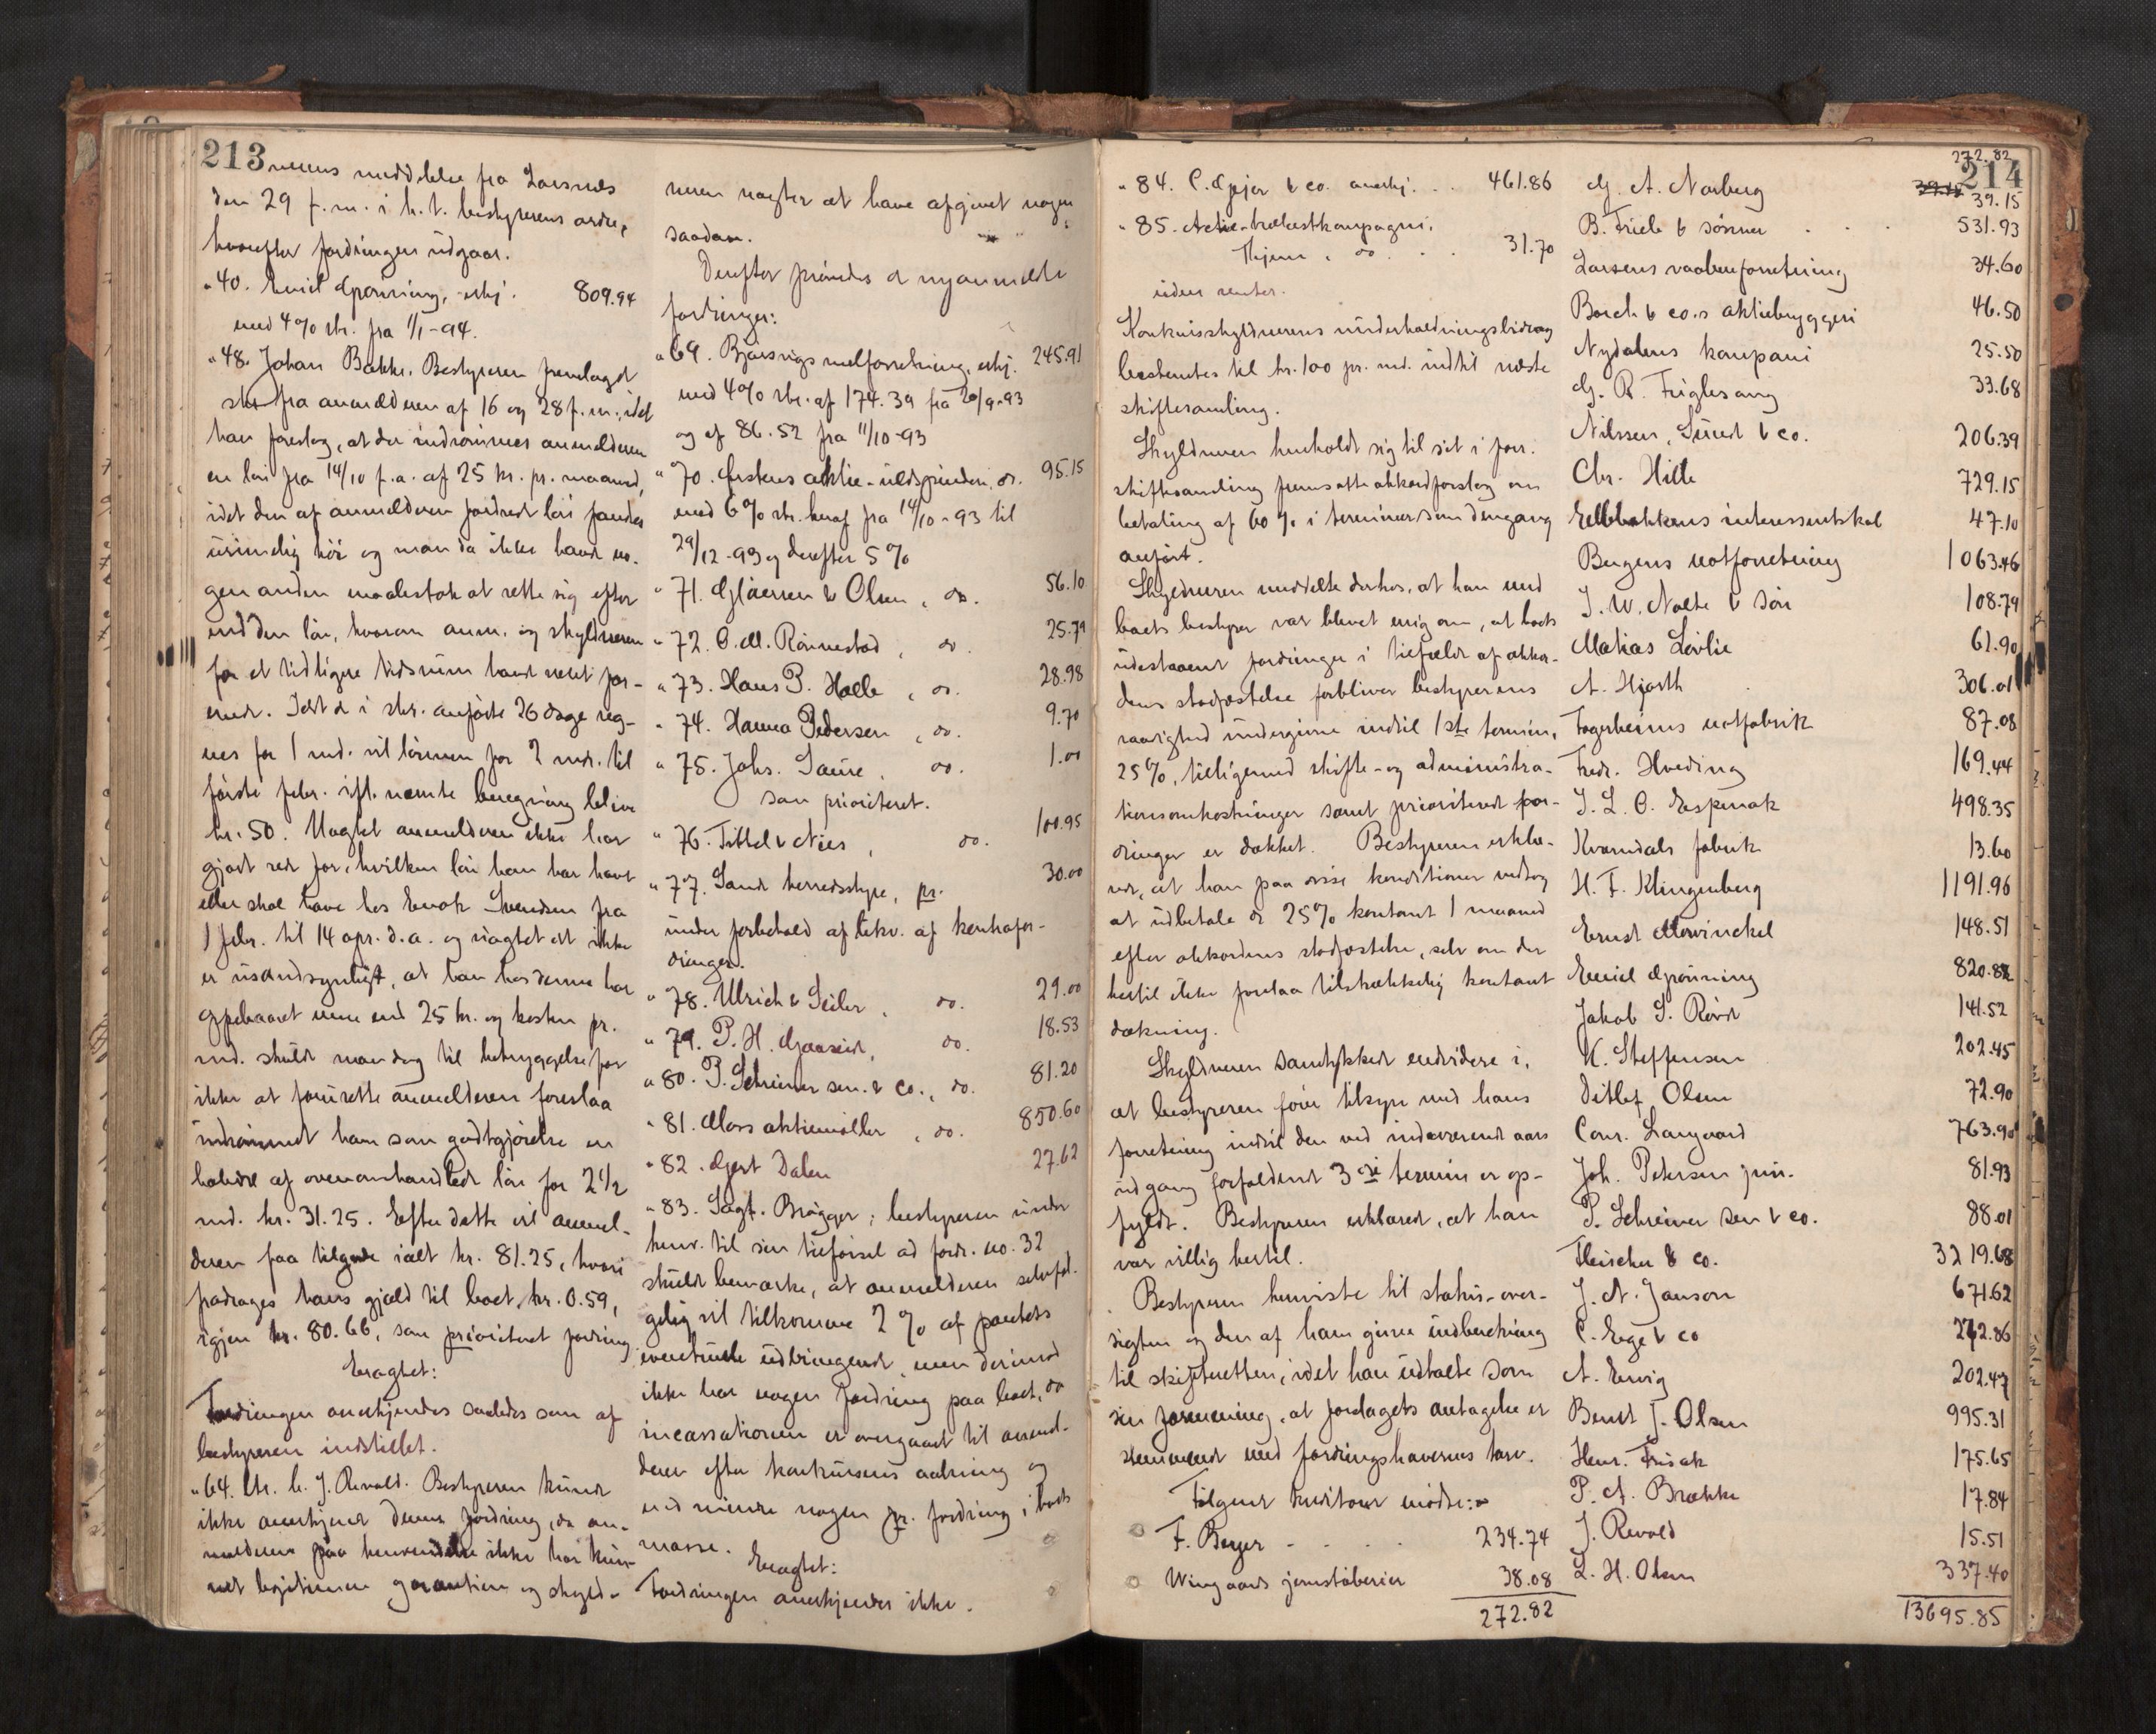 213
nerens meddelelse fra Larsnes
den 29 f.m. i h.t. bestyrerens ordre,
hvorefter fordringen udgaar.
" 40. Emil Grønning, erkj. 809.94
med 4% rtr. fra 1/1-94.
" 48. Johan Bakke. Bestyreren fremlagde
skr. fra anmelderen af 16 og 28 f.m., idet
han foreslog, at der indrømmes anmelderen
en løn fra 14/10 f.a. af 25 kr. pr. maaned,
idet den af anmelderen fordrede løn fandtes
urimelig høi og man da ikke havde no-
gen anden maalestok at rette sig efter
end den løn, hvorom anm. og skyldneren
for et tidligere tidsrum havde været for-
enede. Idet de i skr. anførte 26 dage reg-
nes for 1 md. vil lønnen for 2 mdr. til
første febr. ifl. nævnte beregning blive
kr. 50. Uagtet anmelderen ikke har
gjort rede for, hvilken løn han har havt
eller skal have hos Enok Svendsen fra
1 febr. til 14 apr. d.a. og uagtet det ikke
er usandsynligt, at han hos denne har
oppebaaret mere end 25 kr. og kosten pr.
md. skulde man dog til betryggelse for
ikke at forurette anmelderen foreslaa
indrømmet ham som godtgjørelse en
halvdel af ovenomhandlede løn for 2 1/2
md. kr. 31.25. Efter dette vil anmel-
deren faa tilgode ialt kr. 81.25, hvori
fradrages hans gjæld til boet, kr. 0.59,
igjen kr. 80.66, som prioriteret fordring
Eragtet:
Fordringen anerkjendes saaledes som af
bestyreren indstillet.
" 64. J. Revold. Bestyreren kunde
ikke anerkjende denne fordring, da an-
melderen paa henvendelse ikke har kun-
net legitimere garantien og skyld-
neren nægter at have afgivet nogen
saadan.
Derefter prøvedes de nyanmeldte
fordringer:
" 69. Bjørsvigs mølforretning, erkj. 245.91
med 4% rtr. af 174.39 fra 20/9-93
og af 86.52 fra 11/10-93
" 70. Arstens aktie-uldspinderi, do. 95.15
med 6% rtr. heraf fra 14/10-93 til
29/12-93 og derefter 5%
" 71. Gläersen & Olsen, do. 56.10
" 72. O. M. Rønnestad, do. 25.79
" 73. Hans P. Holle, do. 28.98
" 74. Hanna Pedersen, do. 9.70
" 75. Johs. Saure, do. 1.00
som prioriteret.
" 76. Tittel & Nies, do. 100.95
" 77. Sande herredsstyre, pr. 30.00
under forbehold af likv. af kontrafor-
dringer.
" 78. Ulrich & Seiler, do. 29.00
" 79. P. H. Gaaseide, do. 18.53
" 80. P. Schreiner sen. & co., do. 81.20
" 81. Moss aktiemøller, do. 850.60
" 82. Gert Dalen 27.62
" 83. Sagf. Brøgger; bestyreren under
henv. til sin tilførsel ad fordr. no. 32
skulde bemærke, at anmelderen selvføl-
gelig vil tilkomme 2% af pantets
eventuelle udbringende, men derimod
ikke har nogen fordring paa boet, da
incassationen er overgaaet til anmel-
deren efter konkursens aabning og
end mindre nogen pr. fordring i boets
masse.
Eragtet:
Fordringen anerkjendes ikke.
214
" 84. C. Geijer & co. anerkj. . . 461.86
" 85. Actie-trælastkompagni,
Thjeme, do. . . 31.70
uden renter.
Konkursskyldnerens underholdningsbidrag
bestemtes til kr. 100 pr. md. indtil næste
skiftesamling.
Skyldneren henholdt sig til sit i forr.
skiftesamling fremsatte akkordforslag om
betaling af 60% i terminer som dengang
anført.
Skyldneren meddelte derhos, at han med
boets bestyrer var blevet enig om, at boets
udestaaende fordringer i tilfælde af akkor-
dens stadfæstelse forbliver bestyrerens
raadighed undergivne indtil 1ste termin,
25%, tilligemed skifte- og administra-
tionsomkostninger samt prioriterede for-
dringer er dækket. Bestyreren erklæ-
rede, at han paa disse konditioner vedtog
at udbetale de 25% kontant 1 maaned
efter akkordens stadfæstelse, selv om der
hertil ikke forelaa tilstrækkelig kontant
dækning.
Skyldneren samtykkede endvidere i,
at bestyreren fører tilsyn med hans
forretning indtil den ved indeværende aars
udgang forfaldende 3die termin er op-
fyldt. Bestyreren erklærede, at han
var villig hertil.
Bestyreren henviste til status-over-
sigten og den af ham givne indberetning
til skifteretten, idet han udtalte som
sin formening, at forslagets antagelse er
stemmende med fordringshavernes tarv.
Følgende kreditorer mødte:
F. Beyer - - - 234.74
Wingaards jernstøberier 38.08
272.82
272.82
G. A. Norberg 39.15
B. Friele & sønner . . . 531.93
Larsens vaabenforretning 34.60
Borch & co.s aktiebryggeri 46.50
Nydalens kompani 25.50
G. R. Fuglesang 33.68
Nilssen, Sund & co. 206.39
Chr. Hille 729.15
Elvebakkens interessentskab 47.10
Bergens notforretning 1063.46
J. W. Nolte & søn 108.79
Matias Løvlie 61.90
A. Hjorth 306.01
Fagerheims notfabrik 87.08
Fredr. Hveding 169.44
J. L. O. Espenak 498.35
Kværndals fabrik 13.60
H. F. Klingenberg 1191.96
Ernst Mowinckel 148.51
Emil Grønning 820.82
Jakob S. Røvde 141.52
K. Steffensen 202.45
Ditlef Olsen 72.90
Conr. Langaard 763.90
Joh. Petersen jun. 81.93
P. Schreiner sen & co. 88.01
Fleischer & co. 3219.68
J. N. Janson 671.62
C. Ege & co 242.86
A. Enig 202.47
Berndt J. Olsen 995.31
Henr. Frisak 175.65
P. A. Brække 17.84
J. Revold 15.51
L. H. Olsen 337.40
13695.85